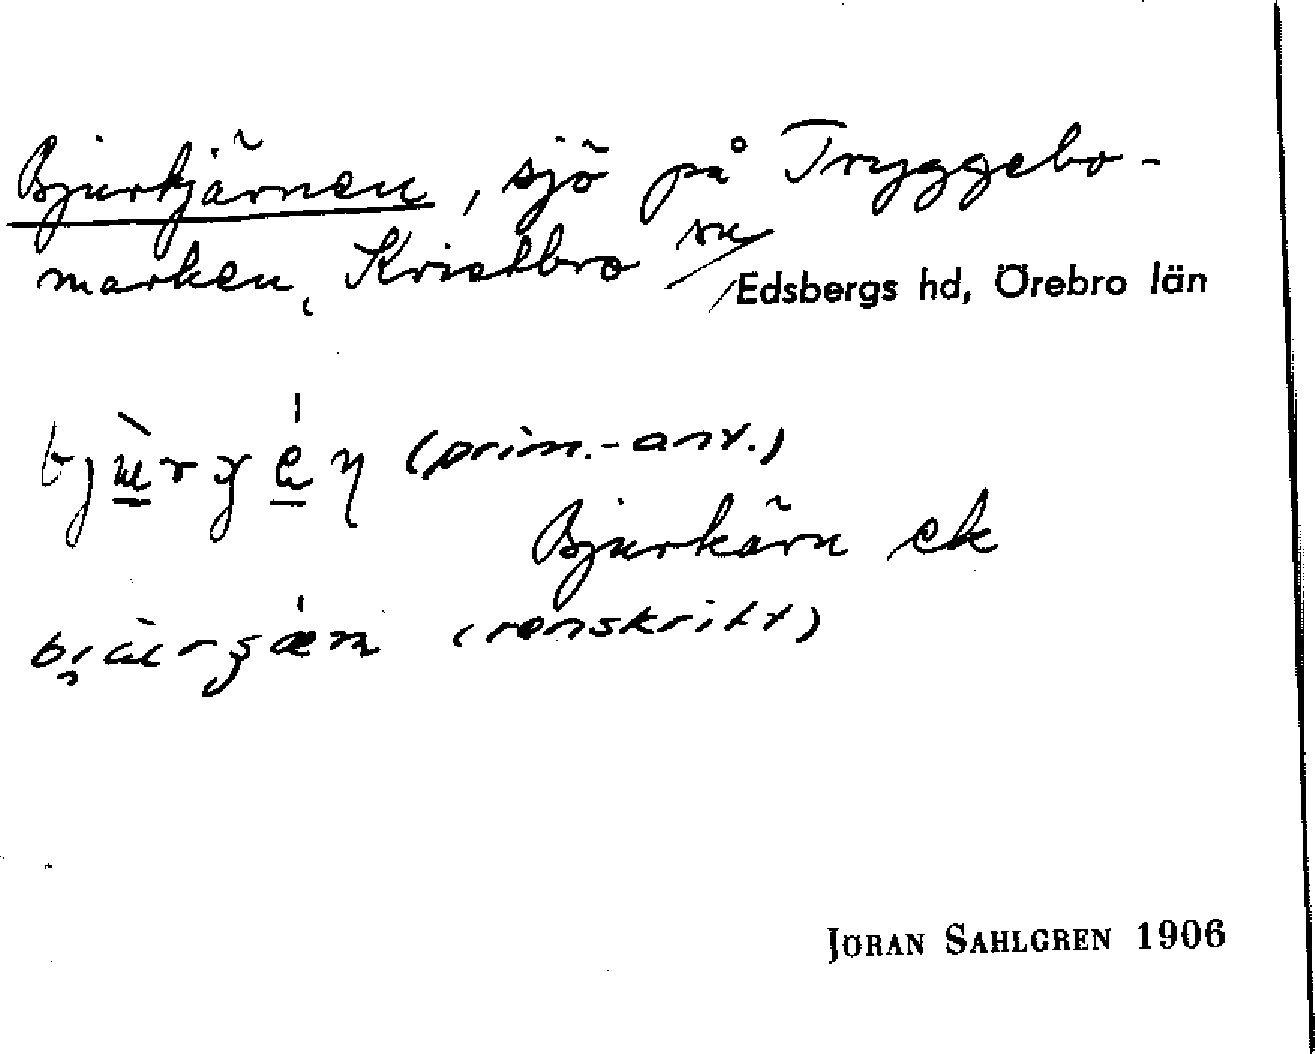 Bjurkjärnen, sjö på Tryggebo-
marken, Kvistbro sn
Edsbergs hd, Örebro län
(prim.-anv.)
Bjurkärn ek
(renskrift)
JÖRAN SAHLGREN 1906